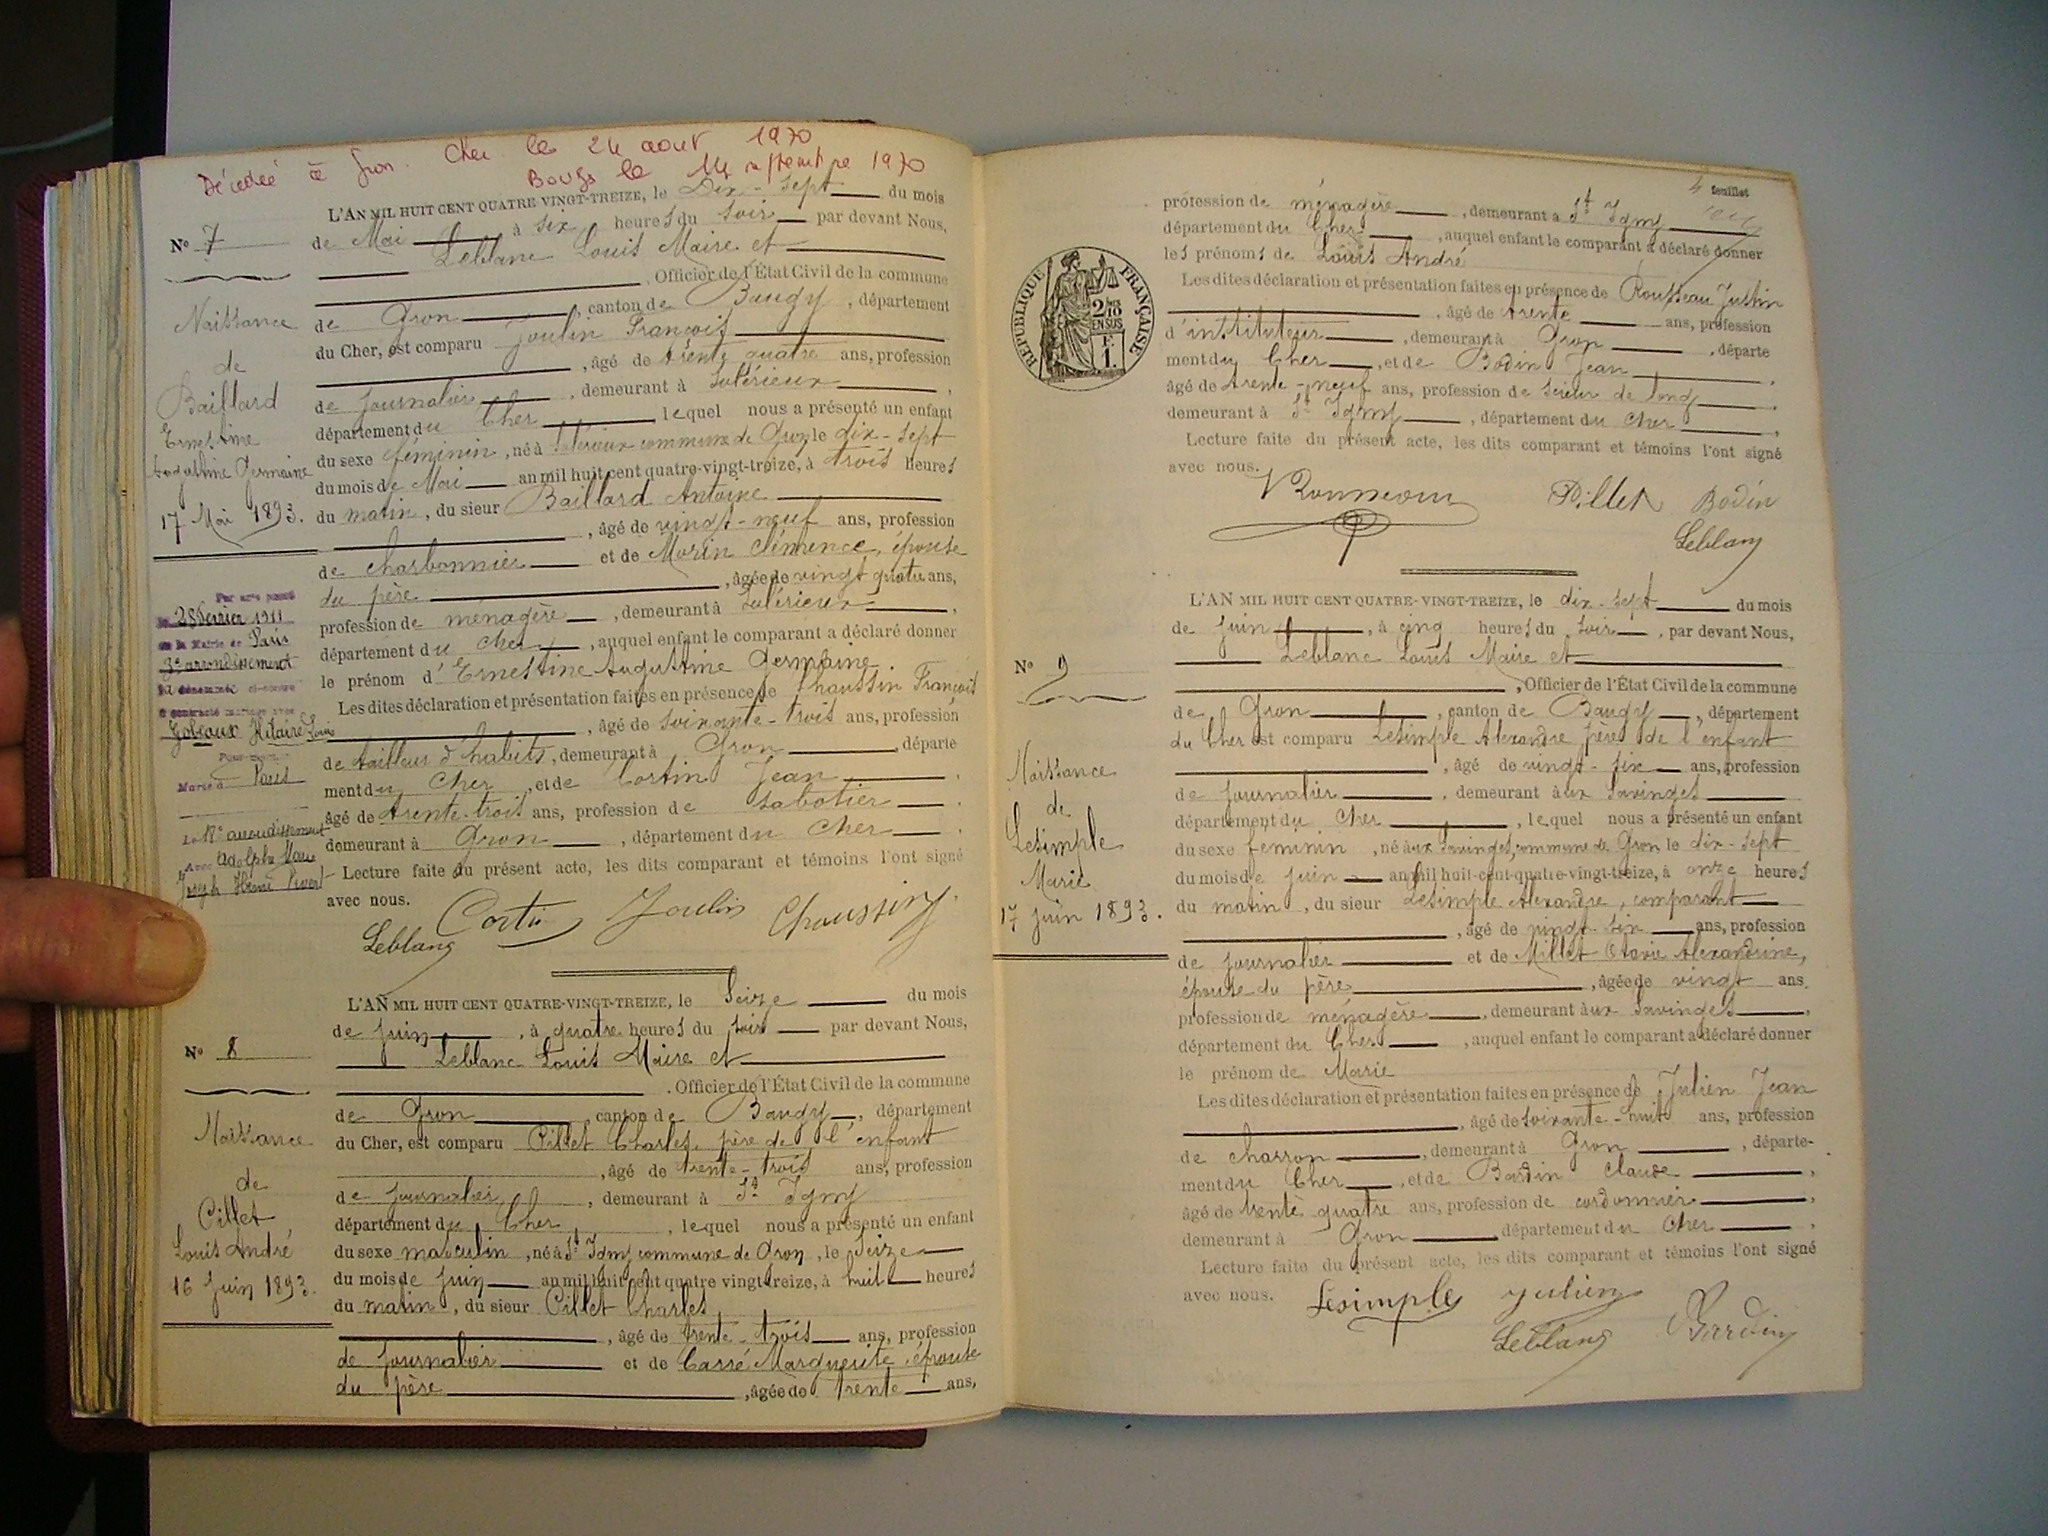 Décédée à Gron. Cher le 24 aout 1970
le 14 septembre 1970
L'AN MIL HUIT CENT QUATRE-VINGT-TREIZE, le Dix-sept du mois
de Mai à six heures du soir par devant Nous,
Leblanc Louis Maire et
, Officier de l'État Civil de la commune
de Gron, canton de Baugy, département
du Cher, est comparu Joulin François
, âgé de trente quatre ans, profession
de journalier, demeurant à
département du Cher lequel nous a présenté un enfant
du sexe féminin, né à commune de Gron le dix-sept
du mois de Mai an mil huit cent quatre-vingt-treize, à trois heures
du matin, du sieur Baillard Antoine
, âgé de vingt-neuf ans, profession
de charbonnier et de Morin Clémence, épouse
du père, âgée de vingt quatre ans,
profession de ménagère, demeurant à
département du Cher, auquel enfant le comparant a déclaré donner
le prénom d'Ernestine Augustine Germaine
Les dites déclaration et présentation faites en présence de Chaussin François
, âgé de soixante-trois ans, profession
de tailleur d'habits, demeurant à Gron, départe
ment du Cher, et de Cortin Jean
âgé de trente-trois ans, profession de sabotier
demeurant à Gron, département du Cher.
Lecture faite du présent acte, les dits comparant et témoins l'ont signé
avec nous.
Leblanc Joulin
N° 7
Naissance
de
Baillard
Ernestine
Augustine Germaine
17 Mai 1893.
Par acte passé
le 28 Février 1911
en la Mairie de Paris
3e arrondissement
la dénommée ci-contre
a contracté mariage avec
Hilaire Louis
Marié à Paris
Le 18e arrondissement
Avec Adolphe
Joseph Henri
L'AN MIL HUIT CENT QUATRE-VINGT-TREIZE, le Seize du mois
de Juin, à quatre heures du soir par devant Nous,
Leblanc Louis Maire et
, Officier de l'État Civil de la commune
de Gron, canton de Baugy, département
du Cher, est comparu Pillet Charles, père de l'enfant
, âgé de trente-trois ans, profession
de journalier, demeurant à St Igny
département du Cher, lequel nous a présenté un enfant
du sexe masculin, né à St Igny commune de Gron, le Seize
du mois de Juin an mil huit cent quatre vingt treize, à huit heures
du matin, du sieur Pillet Charles
, âgé de trente-trois ans, profession
de journalier et de Carré Marguerite, épouse
du père, âgée de trente ans,
N° 8
Naissance
de
Pillet
Louis André
16 Juin 1893.
4 feuillet
profession de ménagère, demeurant à St Igny
département du Cher, auquel enfant le comparant a déclaré donner
les prénoms de Louis André
Les dites déclaration et présentation faites en présence de Rousseau Justin
, âgé de trente ans, profession
d'instituteur, demeurant à Gron, départe
ment du Cher, et de Bodin Jean,
âgé de trente-neuf ans, profession de scieur de long
demeurant à St Igny, département du Cher,
Lecture faite du présent acte, les dits comparant et témoins l'ont signé
avec nous.
Rousseau Pillet Bodin
Leblanc
RÉPUBLIQUE FRANÇAISE
2/10
EN SUS
1 F.
L'AN MIL HUIT CENT QUATRE-VINGT-TREIZE, le dix-sept du mois
de Juin, à cinq heures du soir, par devant Nous,
Leblanc Louis Maire et
, Officier de l'État Civil de la commune
de Gron, canton de Baugy, département
du Cher est comparu Lesimple Alexandre père de l'enfant
, âgé de vingt-six ans, profession
de journalier, demeurant aux Savinges
département du Cher, lequel nous a présenté un enfant
du sexe féminin, né aux Savinges, commune de Gron le dix-sept
du mois de Juin an mil huit-cent-quatre-vingt-treize, à onze heures
du matin, du sieur Lesimple Alexandre, comparant
, âgé de vingt-six ans, profession
de journalier et de Millet Alexandrine,
épouse du père, âgée de vingt ans,
profession de ménagère, demeurant aux Savinges,
département du Cher, auquel enfant le comparant a déclaré donner
le prénom de Marie
Les dites déclaration et présentation faites en présence de Julien Jean
, âgé de soixante-huit ans, profession
de charron, demeurant à Gron, départe-
ment du Cher, et de Bardin Claude,
âgé de trente quatre ans, profession de cordonnier,
demeurant à Gron département du Cher.
Lecture faite du présent acte, les dits comparant et témoins l'ont signé
avec nous.
Lesimple Julien Bardin
Leblanc
N° 9
Naissance
de
Lesimple
Marie
17 Juin 1893.